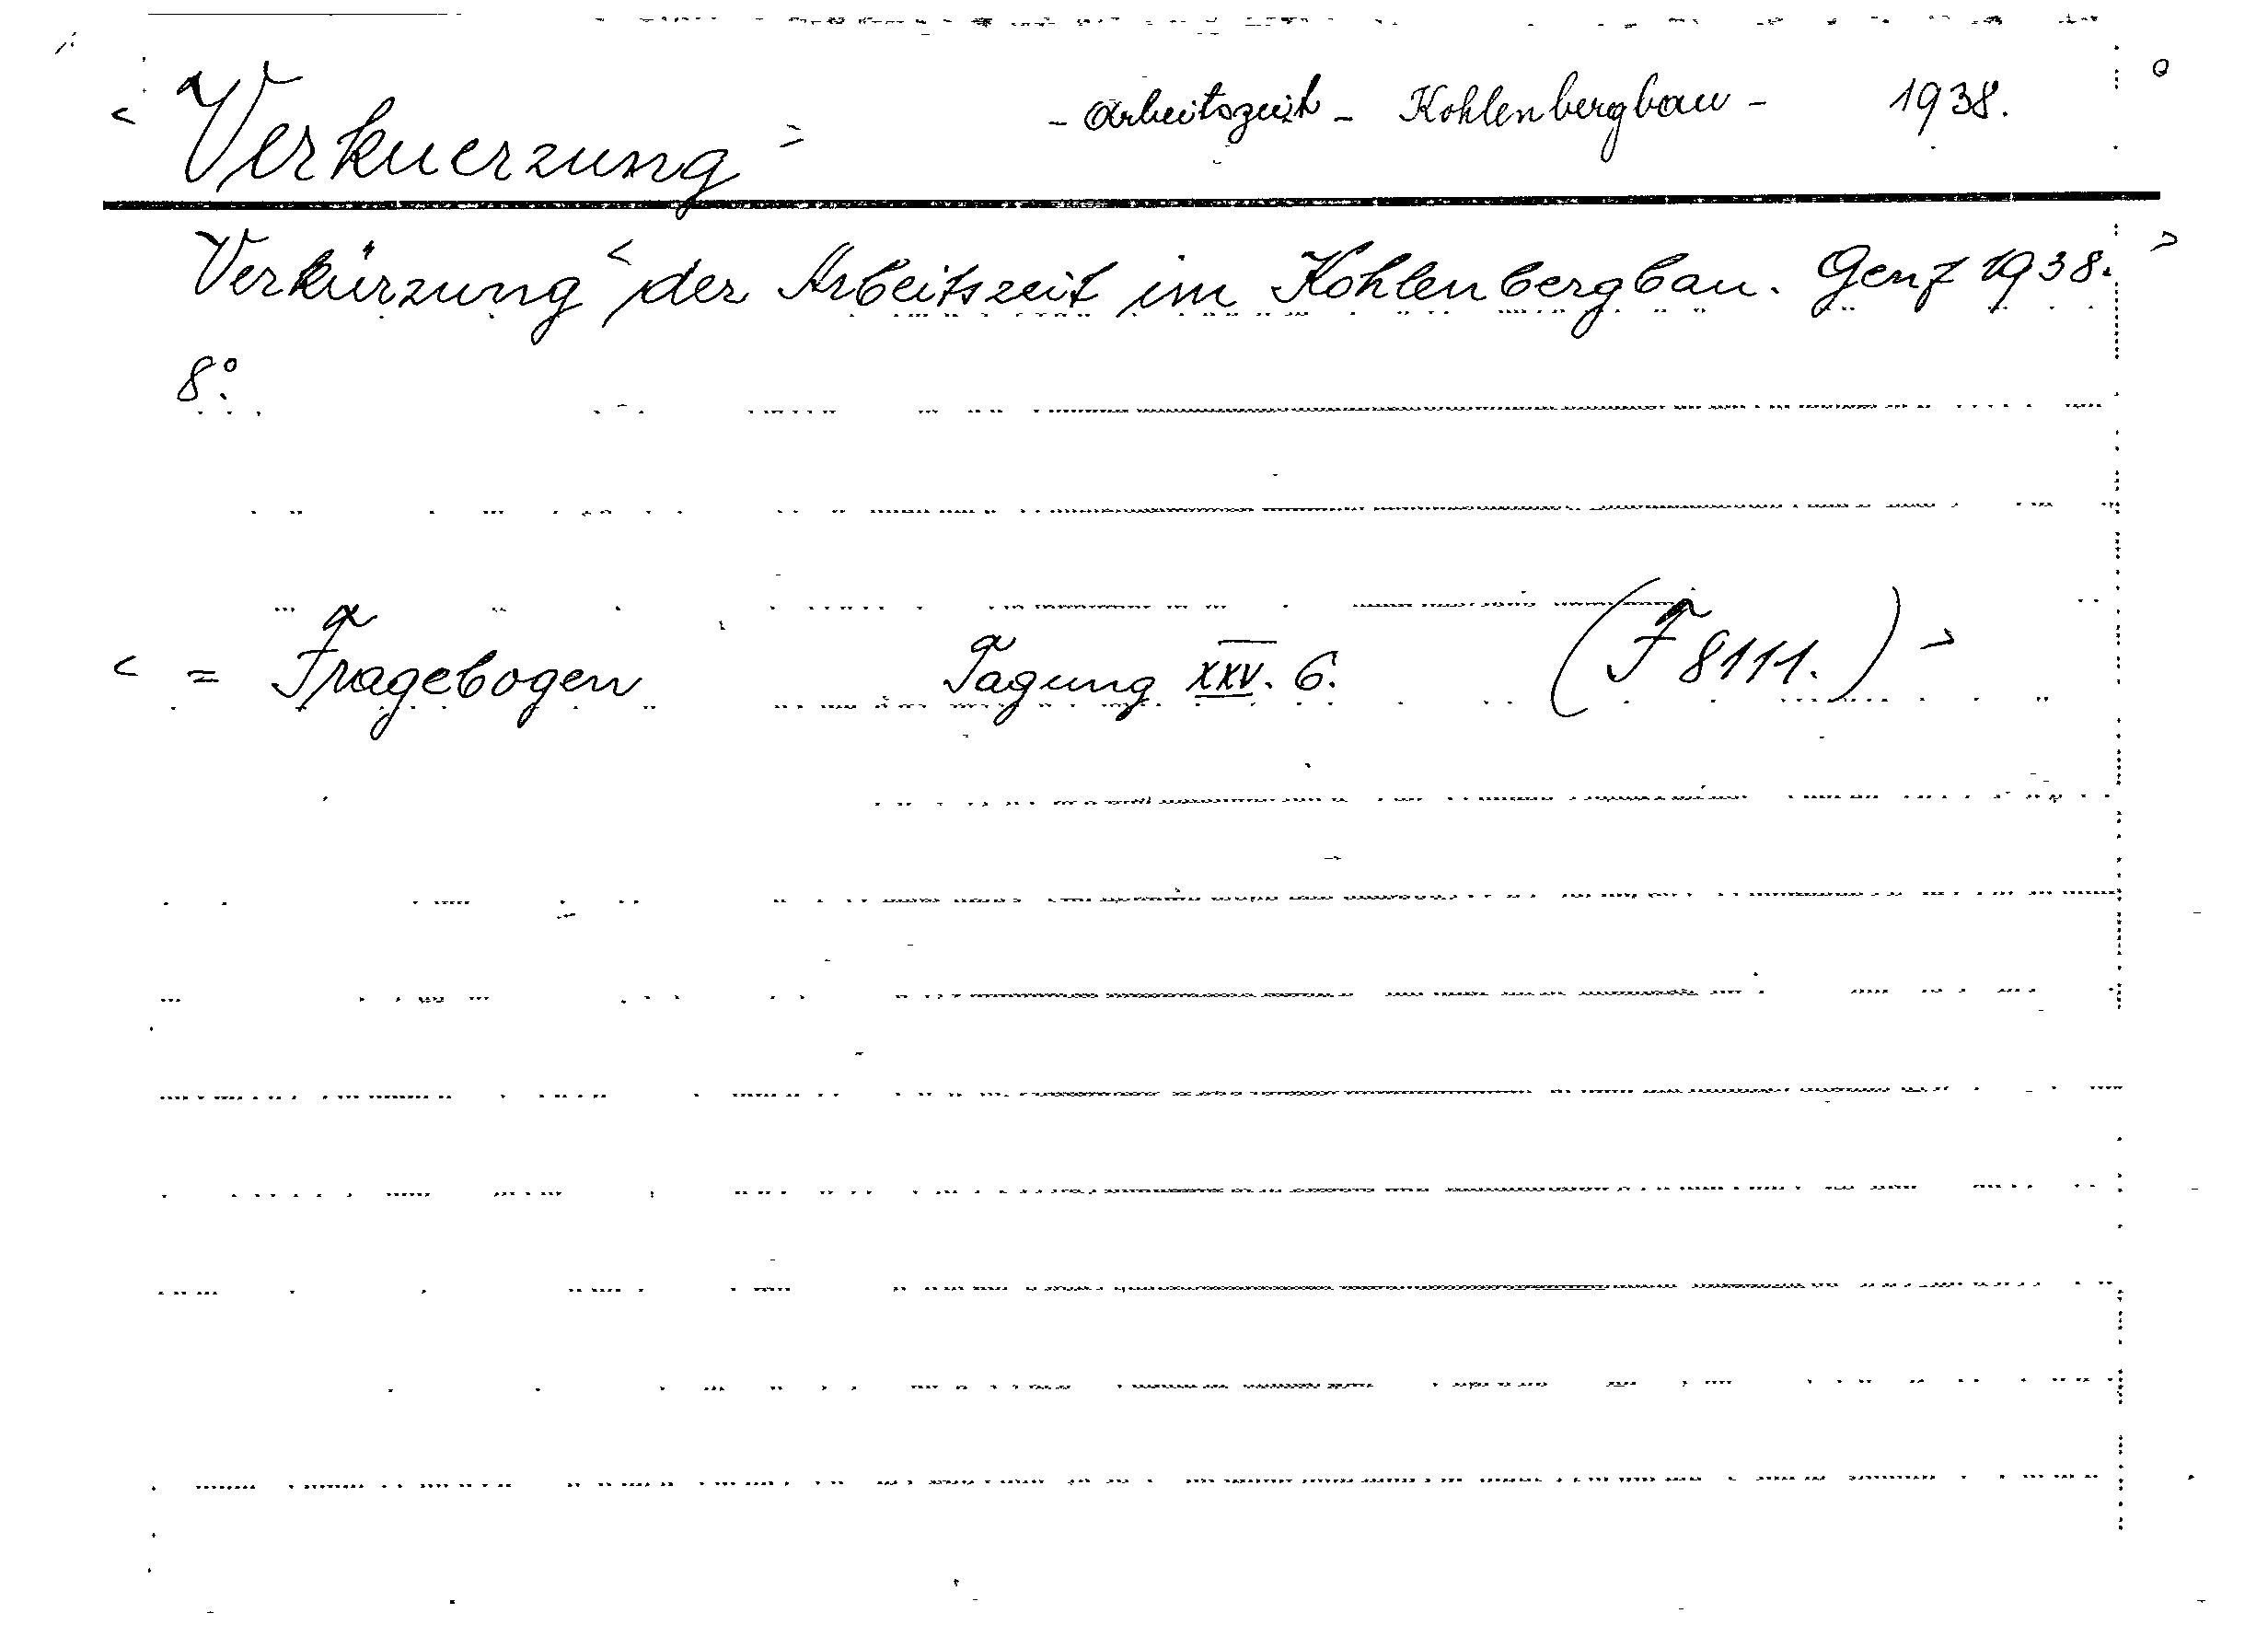 < Verkuerzung = - Arbeitszeit - Kohlenbergbau - 1938.
Verkürzung < der Arbeitszeit im Kohlenbergbau. Genf 1938. >
8°.
< = Fragebogen Tagung XXV. 6. (F 8111.) >